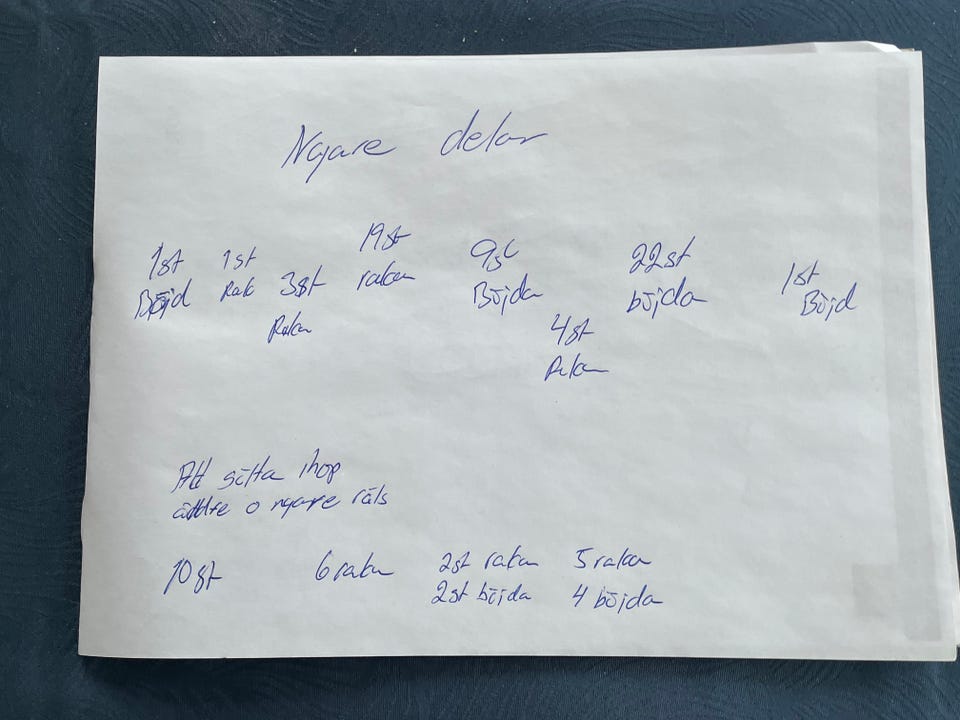 Nyare delar
1st
Böjd
1st
Rak
3st
Raka
19st
raka
9st
Böjda
4st
Raka
22st
böjda
1st
Böjd
Att sätta ihop
äldre o nyare räls
10 st
6 raka
2st raka
2st böjda
5 raka
4 böjda